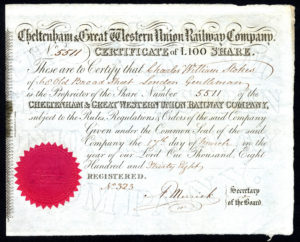 Cheltenham & Great Western Union Railway Company.
No. 5511 CERTIFICATE of £.100 SHARE.
These are to Certify that Charles William Stokes
of 50 Old Broad Street London Gentleman
is the Proprietor of the Share Number 5511 of the
CHELTENHAM & GREAT WESTERN UNION RAILWAY COMPANY,
subject to the Rules Regulations & Orders of the said Company
Given under the Common Seal of the said
Company the 17th day of March in the
year of our Lord One Thousand, Eight
Hundred and Thirty Eight
REGISTERED.
No. 323
Secretary
of the Board